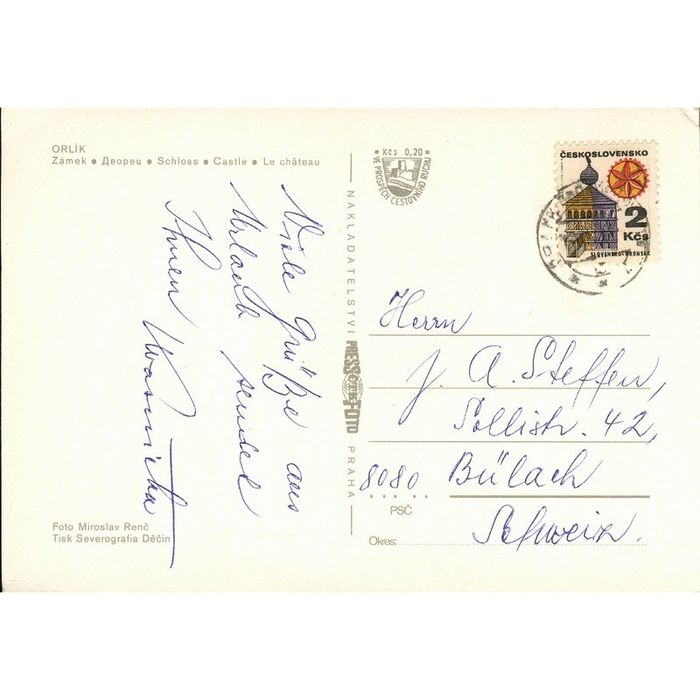 ORLÍK
Zámek • Дворец • Schloss • Castle • Le château
Kčs 0,20
VE PROSPĚCH CESTOVNÍHO RUCHU
ČESKOSLOVENSKO
2
Kčs
SLOVENSKO-HRONSEK
Viele Grüße aus
Urlaub sendet
Ihnen
NAKLADATELSTVÍ PRESSFOTO PRAHA
Herrn
J. A. Steffen,
Sollistr. 42,
8080 Bülach
PSČ
Schweiz.
Okres:
Foto Miroslav Renč
Tisk Severografia Děčín